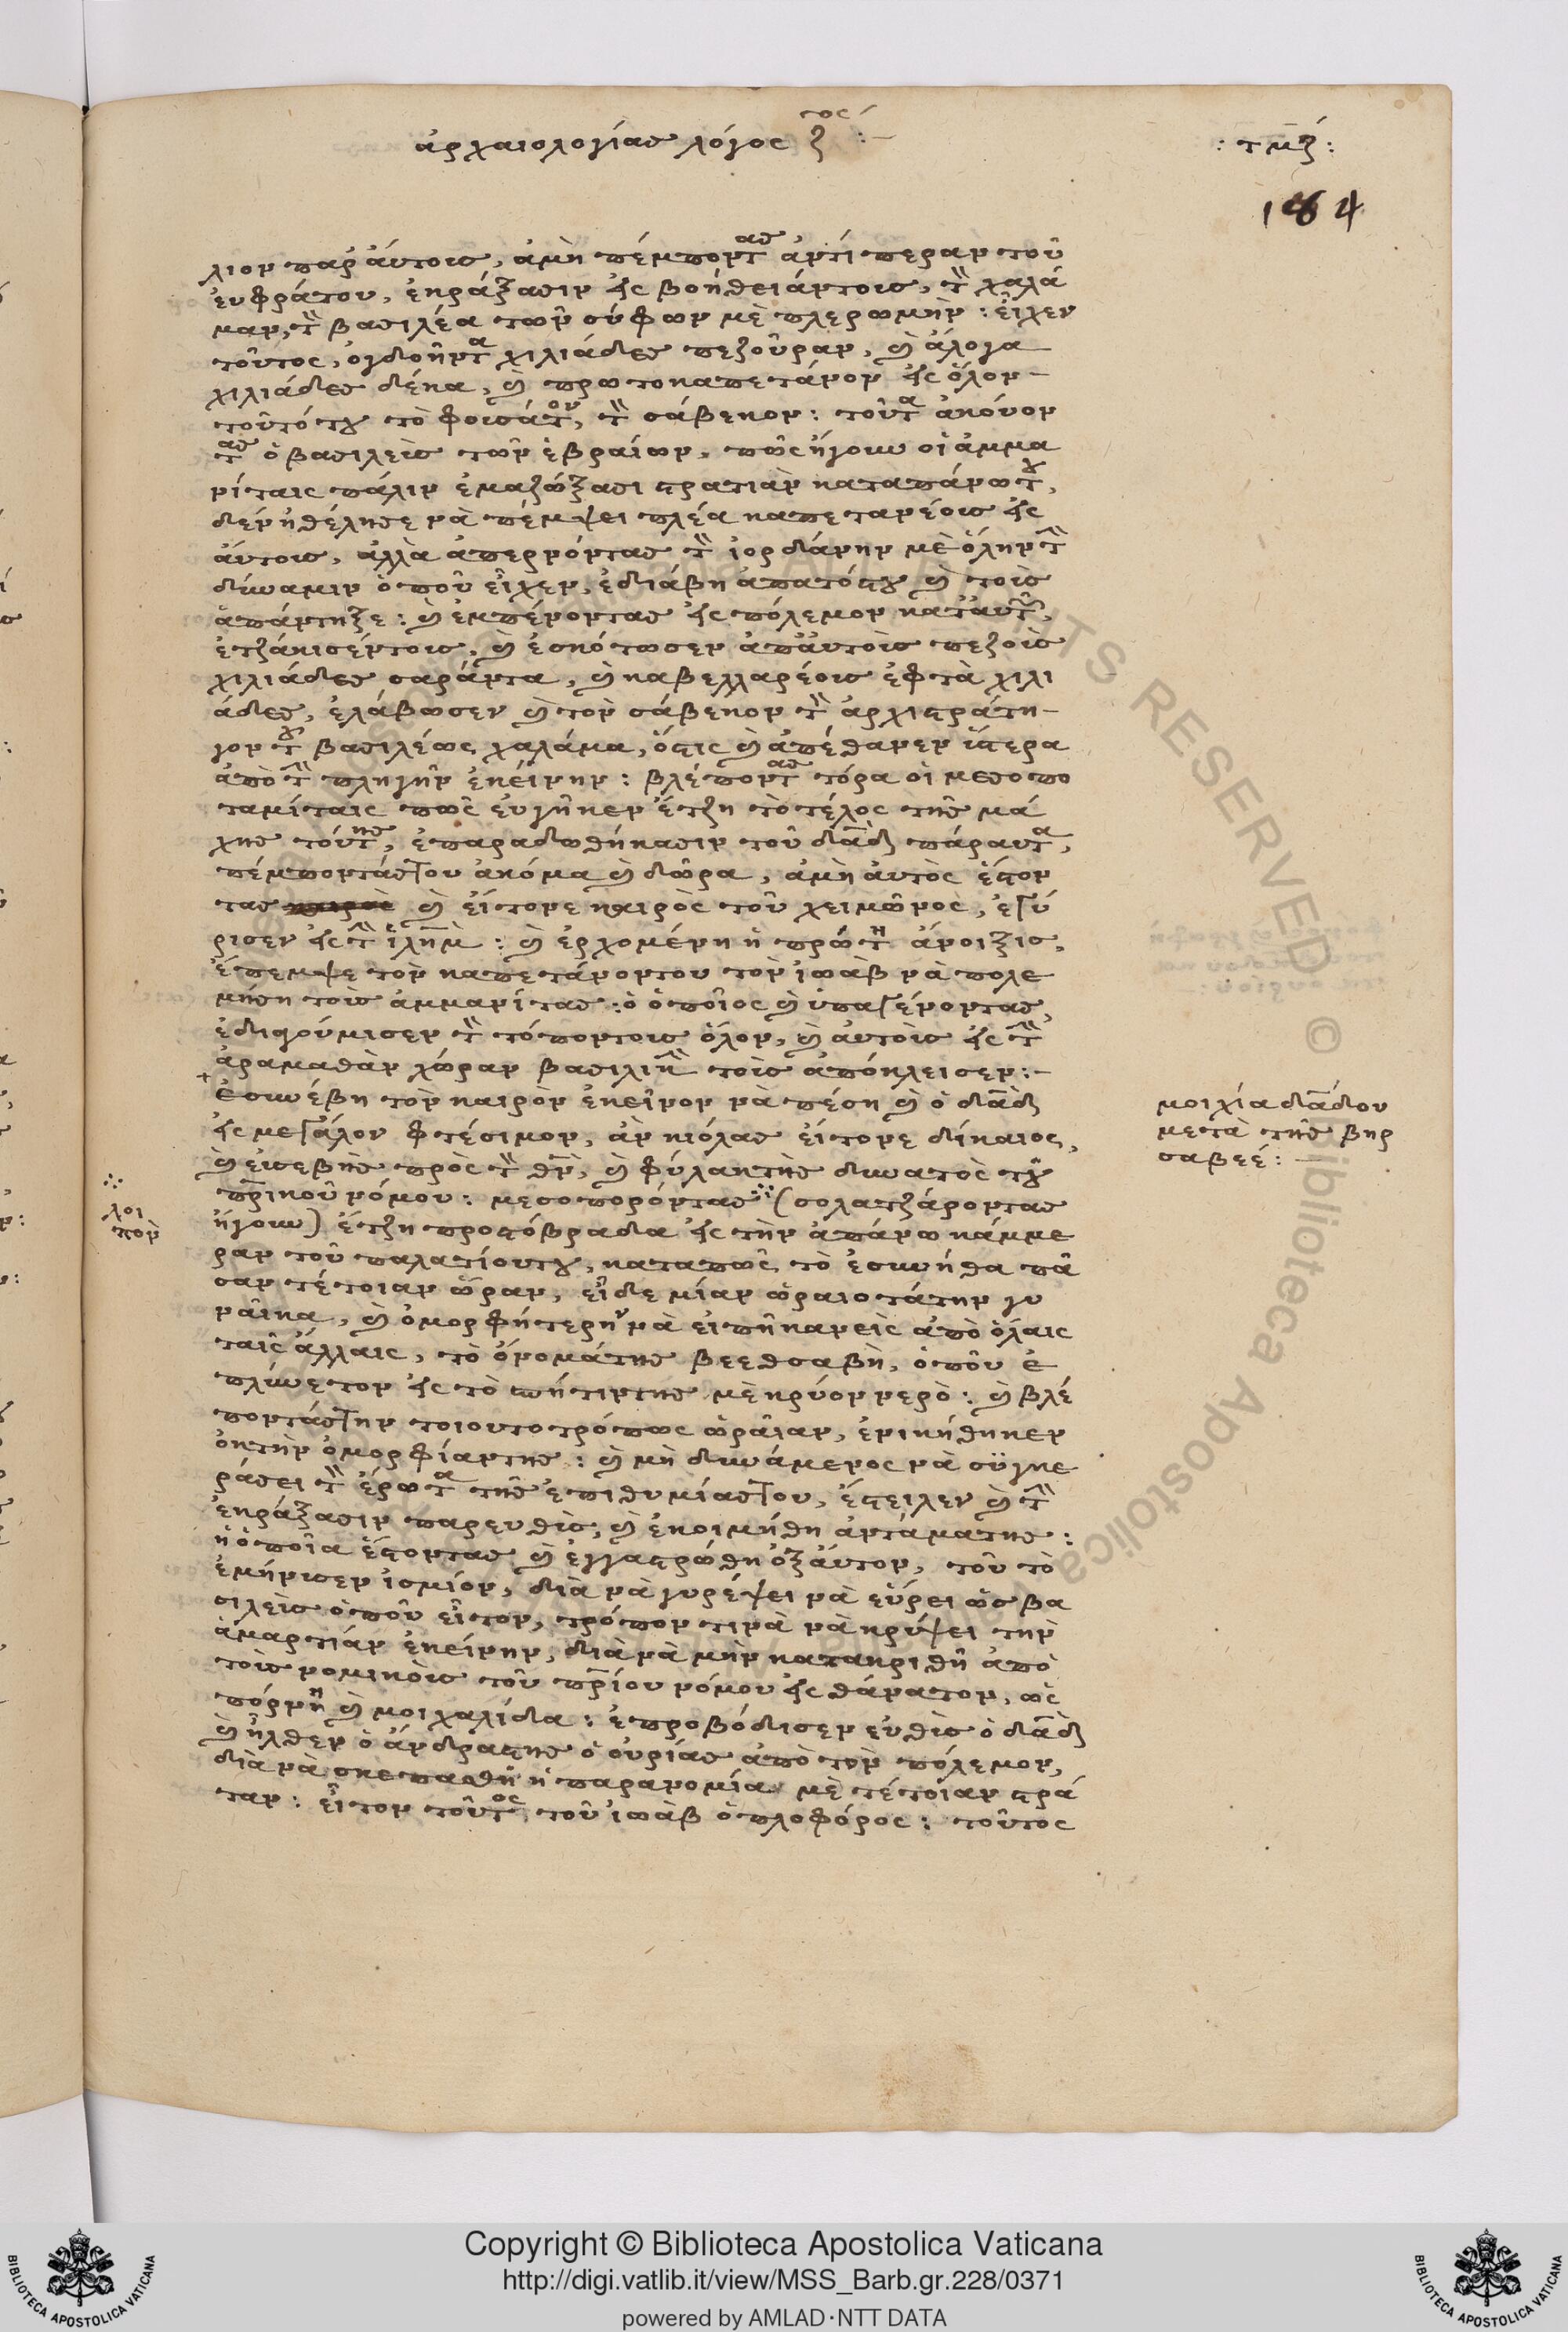 ἀρχαιολογίας λόγος ζτος :—
: τμζ :
184
λιον παρ' ἀυτοις, ἀμὴ πέμποντας ἀντίπεραν τοῦ
ἐυφράτου, ἐκράξασιν εἰς βοήθειάντοις, τὸν χαλά
μαν, τὸν βασιλέα τῶν σύφων μὲ πλερωμὴν : εἶχεν
τοῦτος, ὀγδοῆντα χιλιάδες πεζοῦραν, καὶ ἄλογα
χιλιάδες δέκα, καὶ πρωτοκαπετάνον εἰς ὅλον
τοῦτό του τὸ φοισάτον, τὸν σάβεκον : τοῦτα ἀκόυον
τας ὁ βασιλεὺς τῶν ἑβραίων, πῶς ἤγουν οἱ ἀμμα
νίταις πάλιν ἐμαζώξασι στρατιὰν καταπάνωτου,
δέν ἠθέλησε νὰ πέμψει πλέα καπετανέοις εἰς
ἀυτοις, ἀλλὰ ἀπερνόντας τὸν ἰορδάνην μὲ ὅλην τὴν
δύναμιν ὁποῦ εἶχεν, ἐδιάβη ἀπατόςτου καὶ τοὶς
ἀπάντηξε : καὶ ἐμπένοντας εἰς πόλεμον κατ' αὐτῶν,
ἐτζάκισέντοις, καὶ ἐσκότωσεν ἀπ' ἀυτοὶς πεζοὶς
χιλιάδες σαράντα, καὶ καβελλαρέοις ἑφτὰ χιλι
άδες, ἐλάβωσεν καὶ τὸν σάβεκον τὸν ἀρχιστράτη
γον τοῦ βασιλέως χαλάμα, ὅστις καὶ ἀπέθανεν ὕστερα
ἀπὸ τὴν πληγὴν ἐκείνην : βλέποντας τόρα οἱ μεσοπο
ταμίταις πῶς εὐγῆκεν ἔτζη τὸ τέλος τῆς μά
χης τόυτης, ἐπαραδωθήκασιν τοῦ δᾱδ πάραυτα,
πέμποντάςτου ἀκόμα καὶ δῶρα, ἀμὴ ἀυτὸς ἔστον
τας καὶ εἴτονε καιρὸς τοῦ χειμῶνος, ἐγύ
ρισεν εἰς τὴν ἱλημ : καὶ ἐρχομένη ἡ πρώτη ἄνοιξις,
ἔπεμψε τὸν καπετάνοντου τὸν ἰωὰβ νὰ πολε
μήση τοὶς ἀμμανίτας : ὁ ὁποῖος καὶ ὑπαγένοντας,
ἐδιαγούμισεν τὸν τόποντοις ὅλον, καὶ ἀυτοὶς εἰς τὴν
ἀραμαθὰν χώραν βασιλικὴν τοὶς ἀπόκλεισεν :—
+ ἐσυνέβη τὸν καιρὸν ἐκεῖνον νὰ πέση καὶ ὁ δᾱδ
εἰς μεγάλον φτέσιμον, ἀν κιόλας εἴτονε δίκαιος,
καὶ εὐσεβὴς πρὸς τὸν θν̄, καὶ φύλακτὴς δυνατὸς τοῦ
πρ̄ικοῦ νόμου : μεσοπορόντας ∴ (σολατζάροντας
ἤγουν) ἔτζη προςτόβραδα εἰς τὴν ἀπάνω κάμμε
ραν τοῦ παλατίουτου, καταπῶς τὸ ἐσυνήθα πᾶ
σαν τέτοιαν ὥραν, εἶδε μίαν ὡραιοτάτην γυ
ναῖκα, καὶ ὀμορφήτερην νὰ εἰπῆ κανεὶς ἀπὸ ὅλαις
ταῖς ἄλλαις, τὸ ὄνομάτης βεεθσαβὴ, ὁποῦ ἐ
πλύνετον εἰς τὸ σπήτιντης μὲ κρύον νερὸ : καὶ βλέ
ποντάςτην τοιουτοτρόπως ὡραίαν, ἐνικήθηκεν
ὀκτὴν ὀμορφίαντης : καὶ μὴ δυνάμενος νὰ σϋγκε
ράσει τὸν ἔρωτα τῆς ἐπιθυμίαςτου, ἔστειλεν καὶ τὴν
ἐκράξασιν παρευθὶς, καὶ ἐκοιμήθη ἀντάματης :
ἡ ὁποῖα ἔστοντας καὶ ἐγγαστρώθη ὀξ ἀυτον, τοῦ τὸ
ἐμήνισεν ἰσμίον, διὰ νὰ γυρέψει νὰ εὕρει ὡς βα
σιλεὺς ὁποῦ εἶτον, τρόπον τινὰ νὰ κρύψει τὴν
ἁμαρτίαν ἐκείνην, διὰ νὰ μὴν κατακριθῆ ἀπὸ
τοὶς νομικοὶς τοῦ πρ̄ίου νόμου εἰς θάνατον, ὡς
πόρνη καὶ μοιχαλίδα : ἐπροβόδισεν εὐθὶς ὁ δᾱδ
καὶ ἦλθεν ὁ ἄνδράςτης ὁ οὐρίας ἀπὸ τὸν πόλεμον,
διὰ νὰ σκεπασθῆ ἡ παρανομία μὲ τέτοίαν στρά
ταν : εἶτον τοῦτος τοῦ ἰωὰβ ὁπλοφόρος : τοῦτος
μοιχία δᾱδου
μετὰ τῆς βηρ
σαβεέ :—
∴ λοι
πὸν
Copyright © Biblioteca Apostolica Vaticana
http://digi.vatlib.it/view/MSS_Barb.gr.228/0371
powered by AMLAD·NTT DATA
BIBLIOTECA APOSTOLICA VATICANA
BIBLIOTECA APOSTOLICA VATICANA